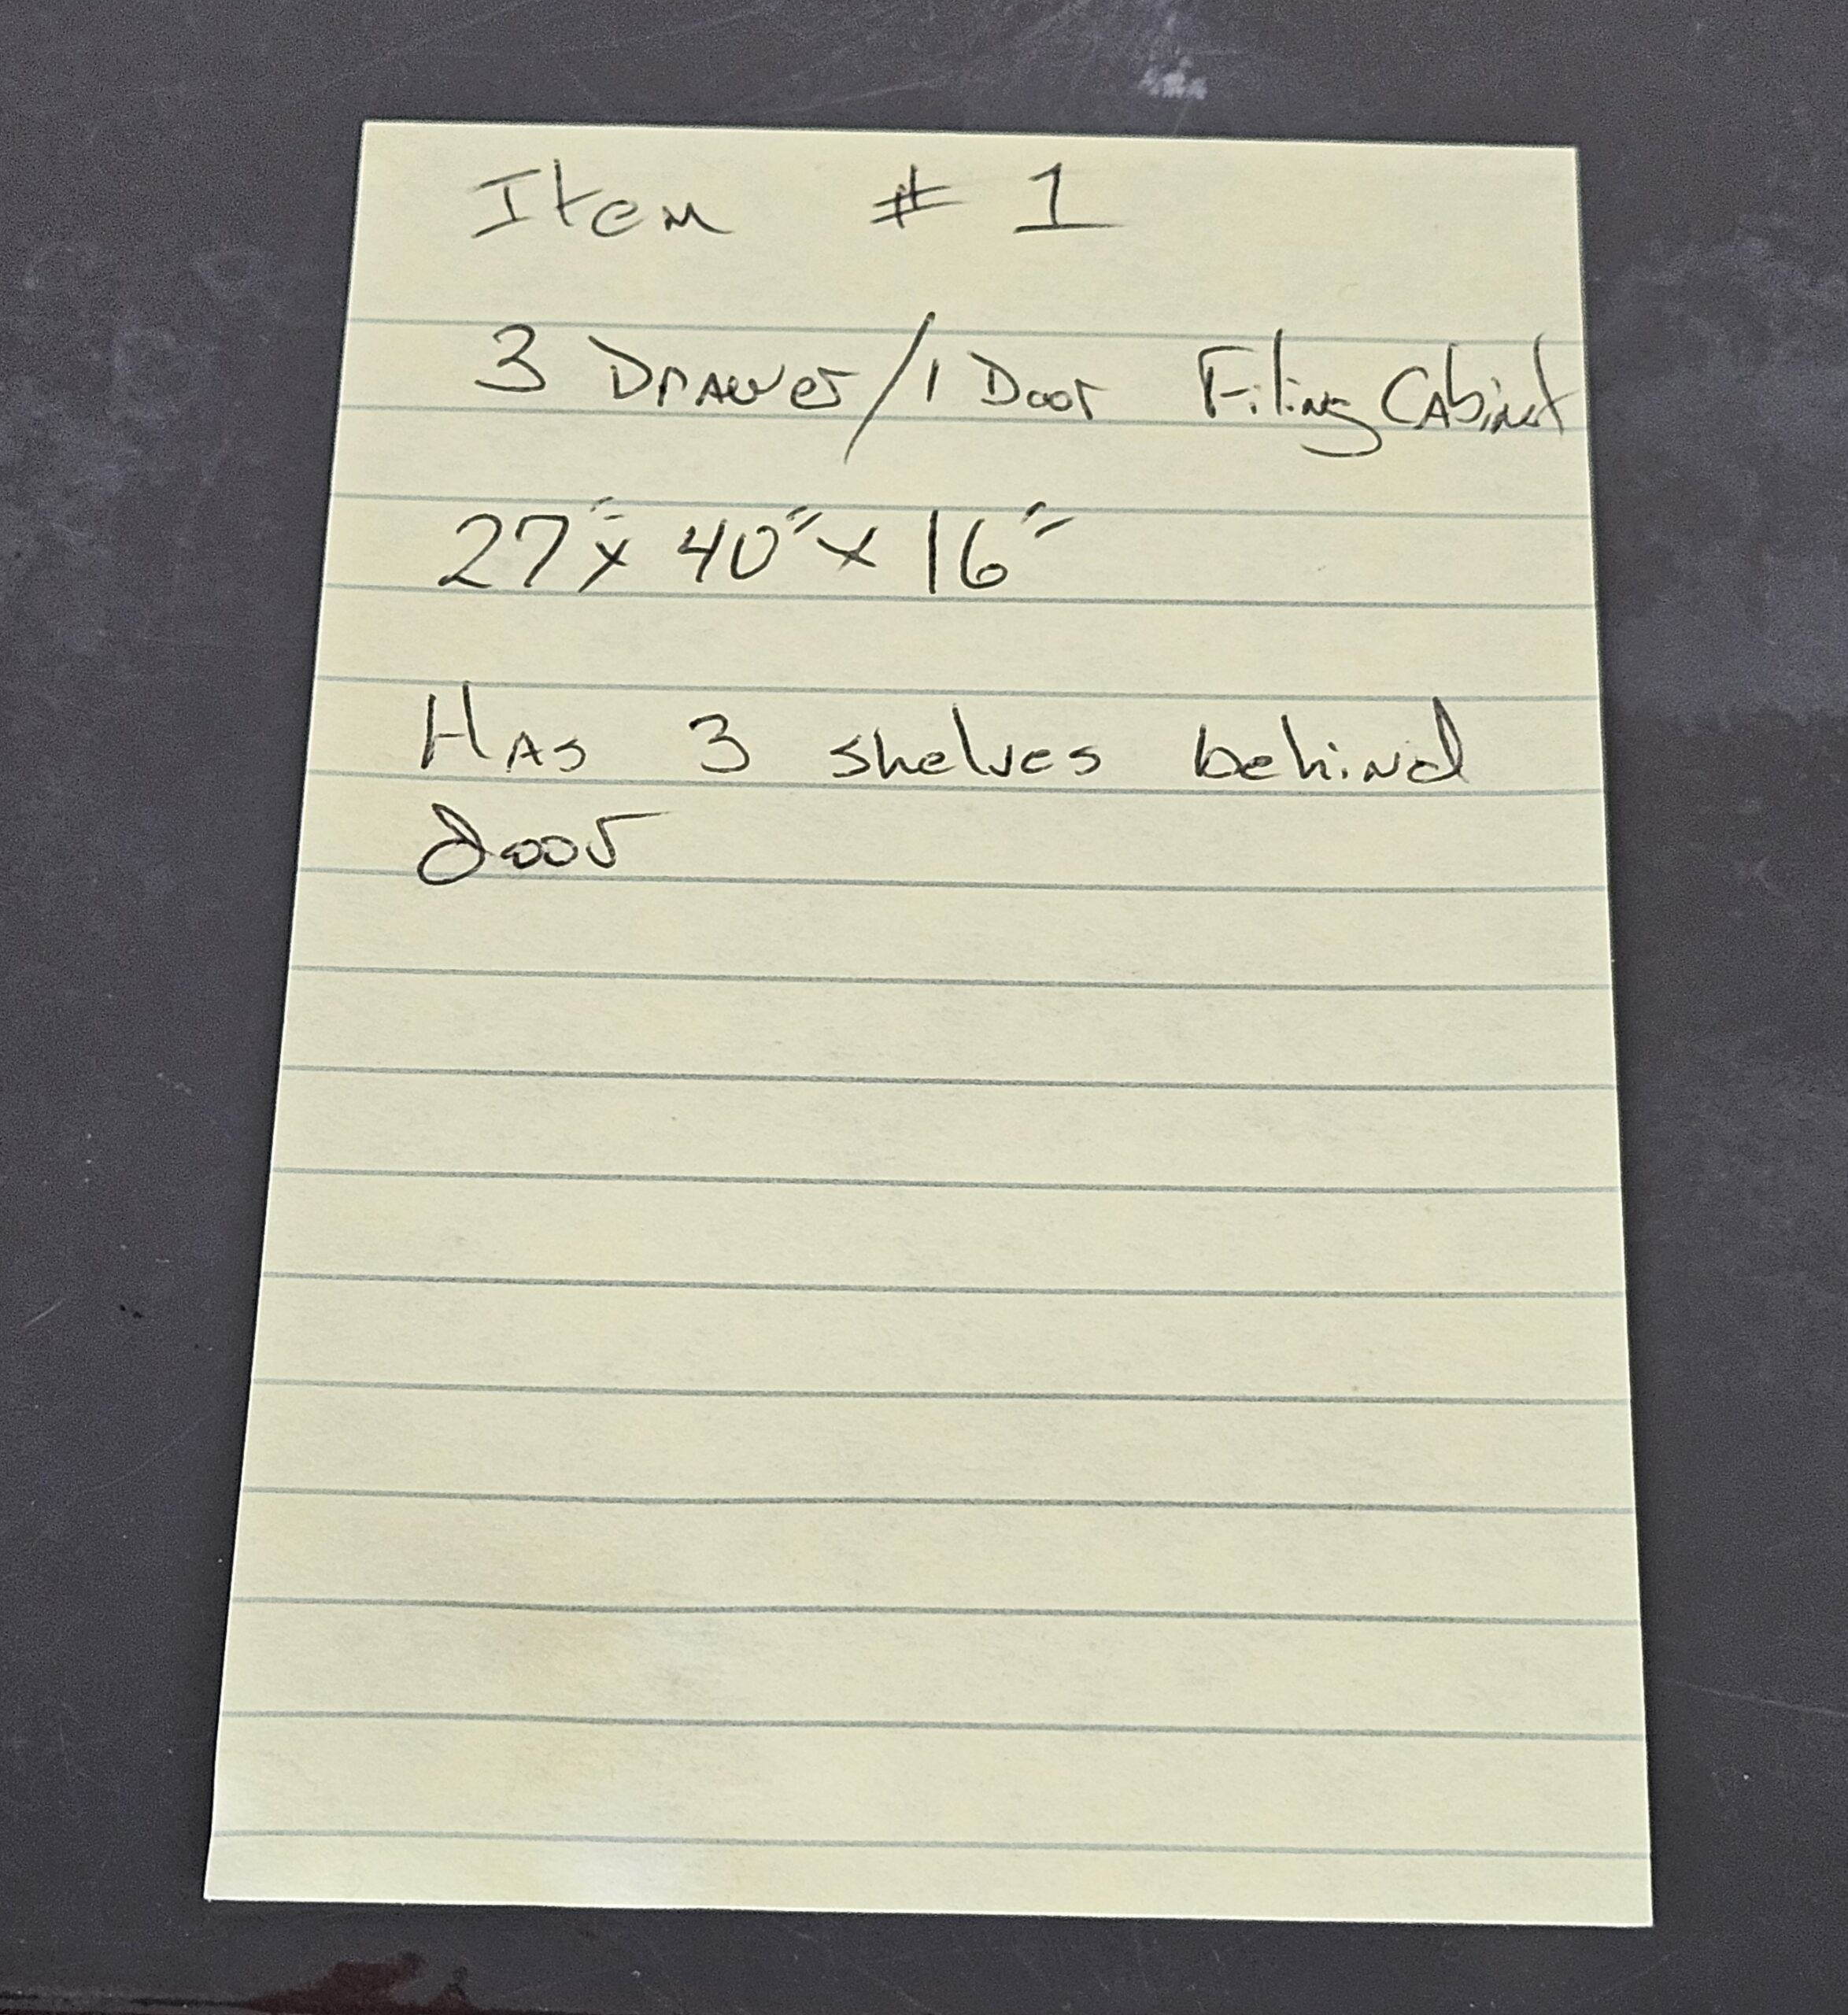 Item # 1
3 Drawer/1 Door Filing Cabinet
27" x 40" x 16"
Has 3 shelves behind
door